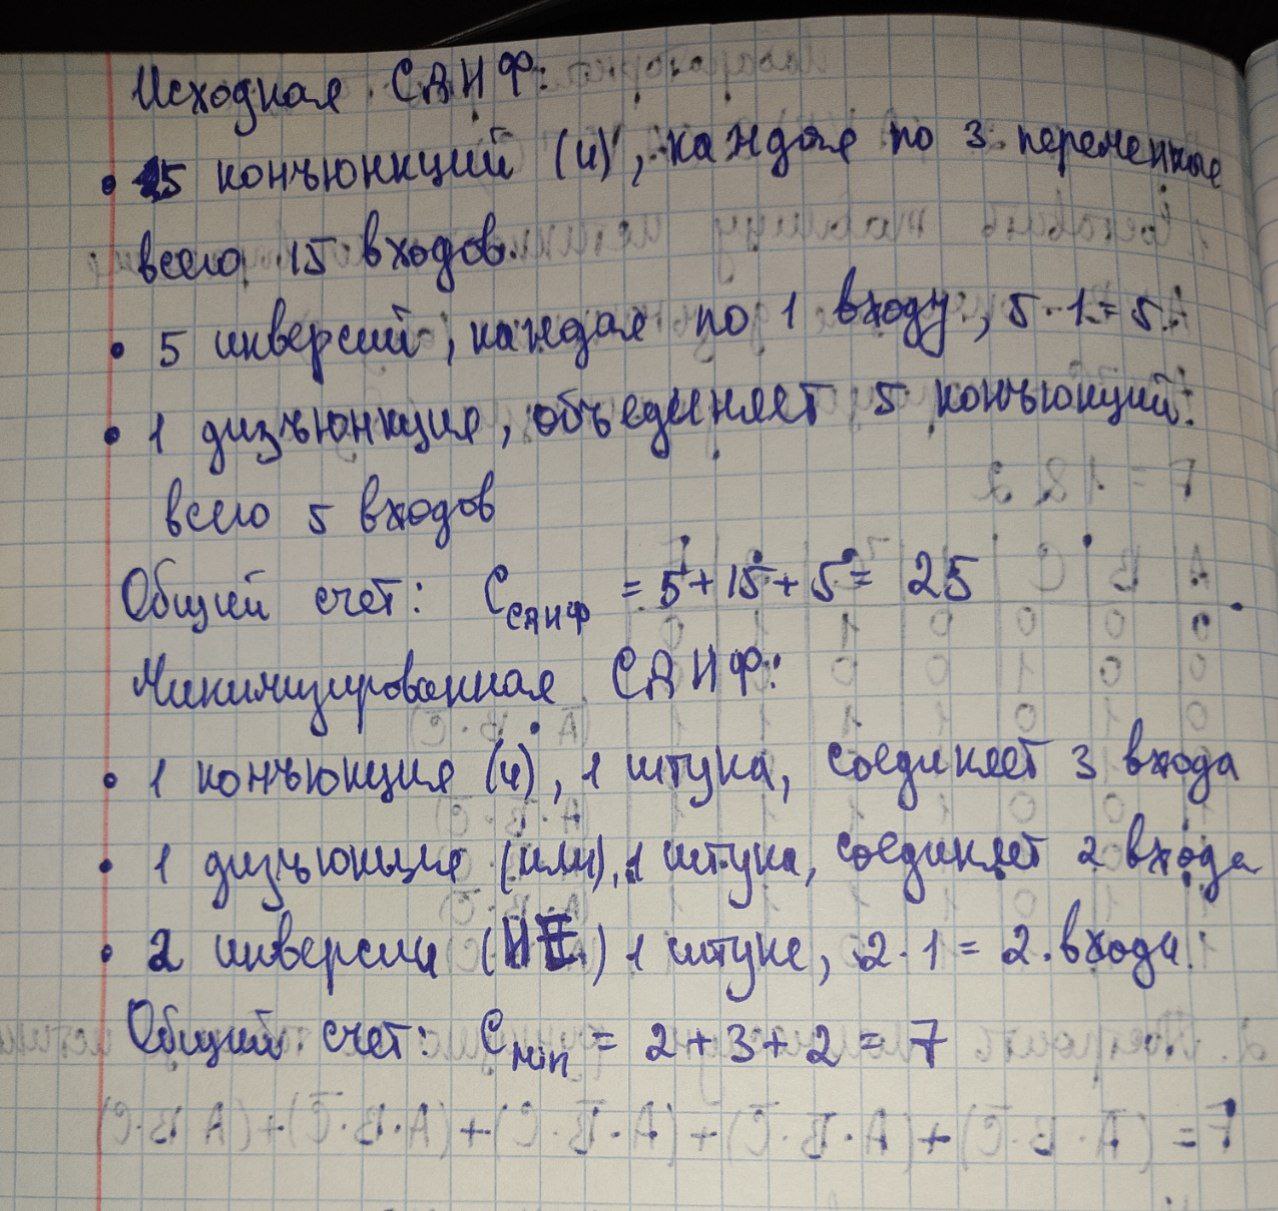 Исходная СДНФ:
• 5 конъюнкций (и), каждая по 3 переменные
всего 15 входов.
• 5 инверсий, каждая по 1 входу, 5·1=5.
• 1 дизъюнкция, объединяет 5 конъюкций.
всего 5 входов
Общий счет: C СДНФ = 5+15+5= 25
Минимизированная СДНФ:
• 1 конъюкция (и), 1 штука, соединяет 3 входа
• 1 дизъюнкция (или), 1 штука, соединяет 2 входа
• 2 инверсии (НЕ) 1 штуке, 2·1=2 входа.
Общий счет: C min = 2+3+2=7